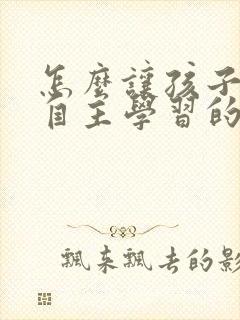 怎麼讓孩子
自主學習的
飄來飄去的影